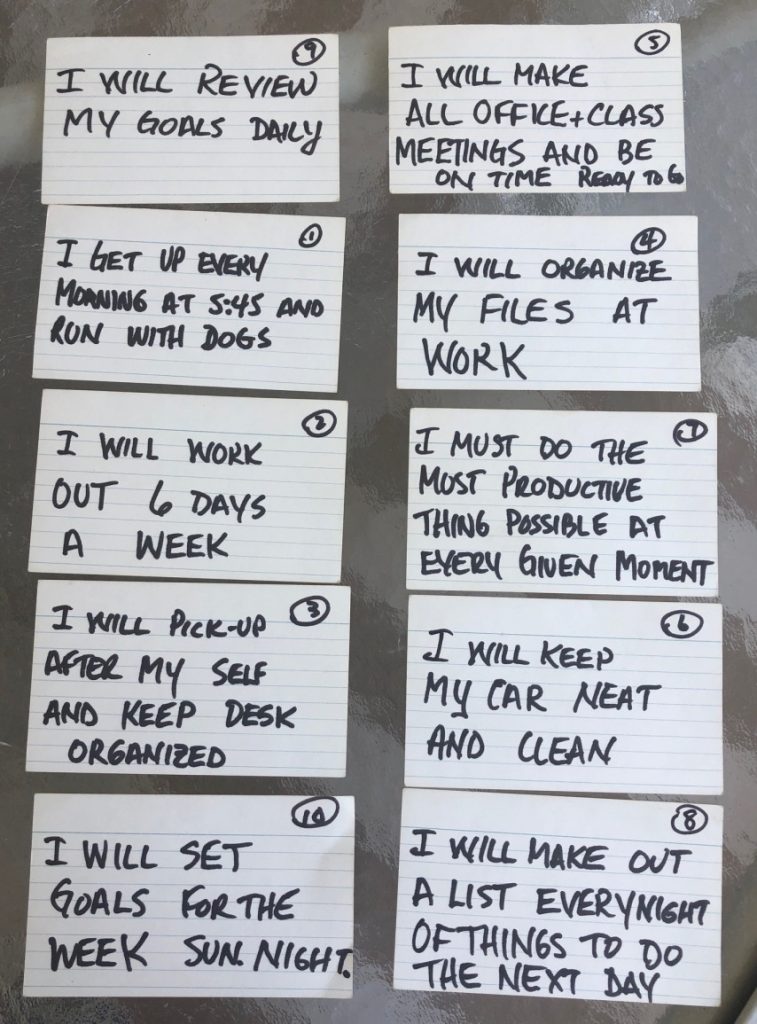 9
I WILL REVIEW
MY GOALS DAILY
5
I WILL MAKE
ALL OFFICE+CLASS
MEETINGS AND BE
ON TIME READY TO GO
1
I GET UP EVERY
MORNING AT 5:45 AND
RUN WITH DOGS
4
I WILL ORGANIZE
MY FILES AT
WORK
2
I WILL WORK
OUT 6 DAYS
A WEEK
7
I MUST DO THE
MOST PRODUCTIVE
THING POSSIBLE AT
EVERY GIVEN MOMENT
3
I WILL PICK-UP
AFTER MY SELF
AND KEEP DESK
ORGANIZED
6
I WILL KEEP
MY CAR NEAT
AND CLEAN
10
I WILL SET
GOALS FOR THE
WEEK SUN. NIGHT.
8
I WILL MAKE OUT
A LIST EVERYNIGHT
OF THINGS TO DO
THE NEXT DAY